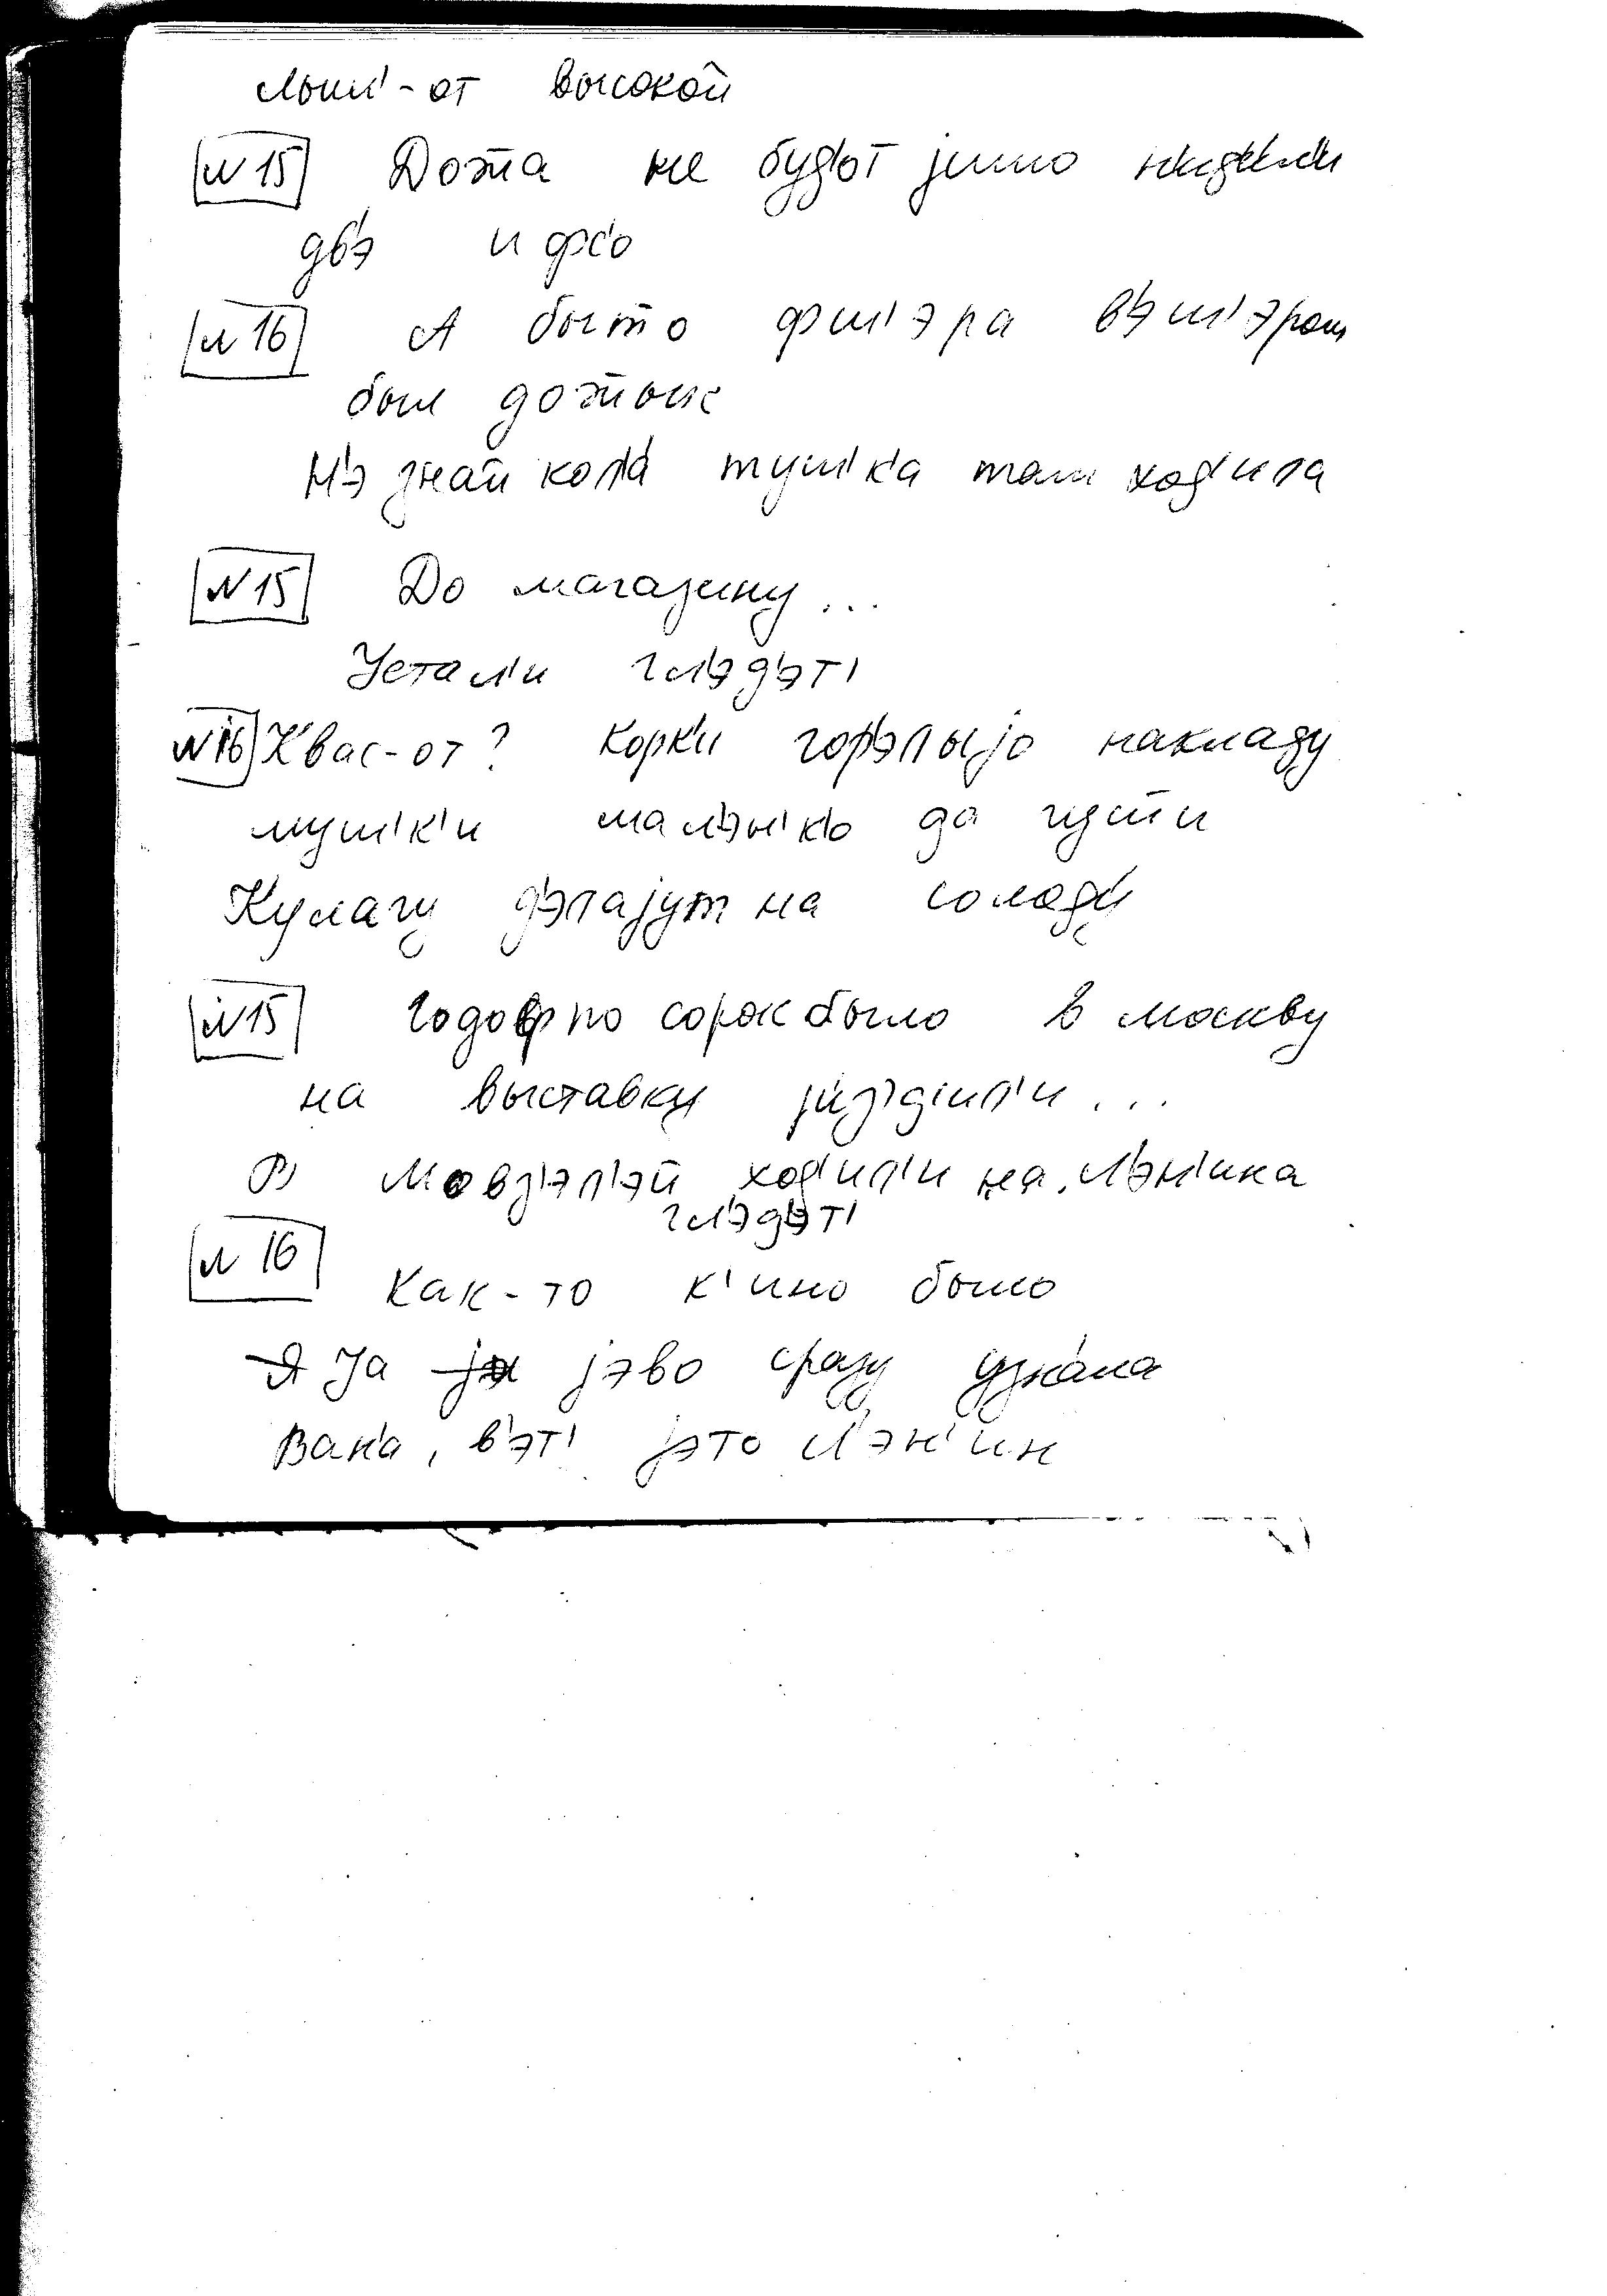 льйи-от высокой
№15 Дожа не буд'от jимо нид'ел'и
дв'э и фс'о
№16 А быто фш'эра в'эш'эром
был дожык
Н'э знай кол'а тушк'а там ход'ила
№15 До магазину...
Устал'и гл'эд'эт'
№16 Квас-от? Корк'и гор'элыjо накладу
мушк'и мал'эн'к'о да гушти
Кулагу д'элаjут на солод'и
№15 Годоф по сорок было в москву
на выставку jиз'д'ил'и...
В Мовз'эл'эй ход'ил'и на Л'эн'ина
гл'эд'эт'
№16
Как-то к'ино было
Я Ja jэво сразу узнала
Ван'а, в'эт' jэто Л'эн'ин